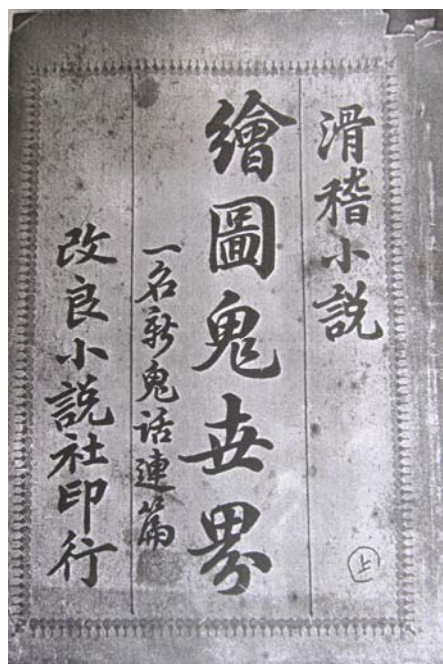 滑稽小説
繪圖鬼世界
上
一名新鬼话連篇
改良小説社印行